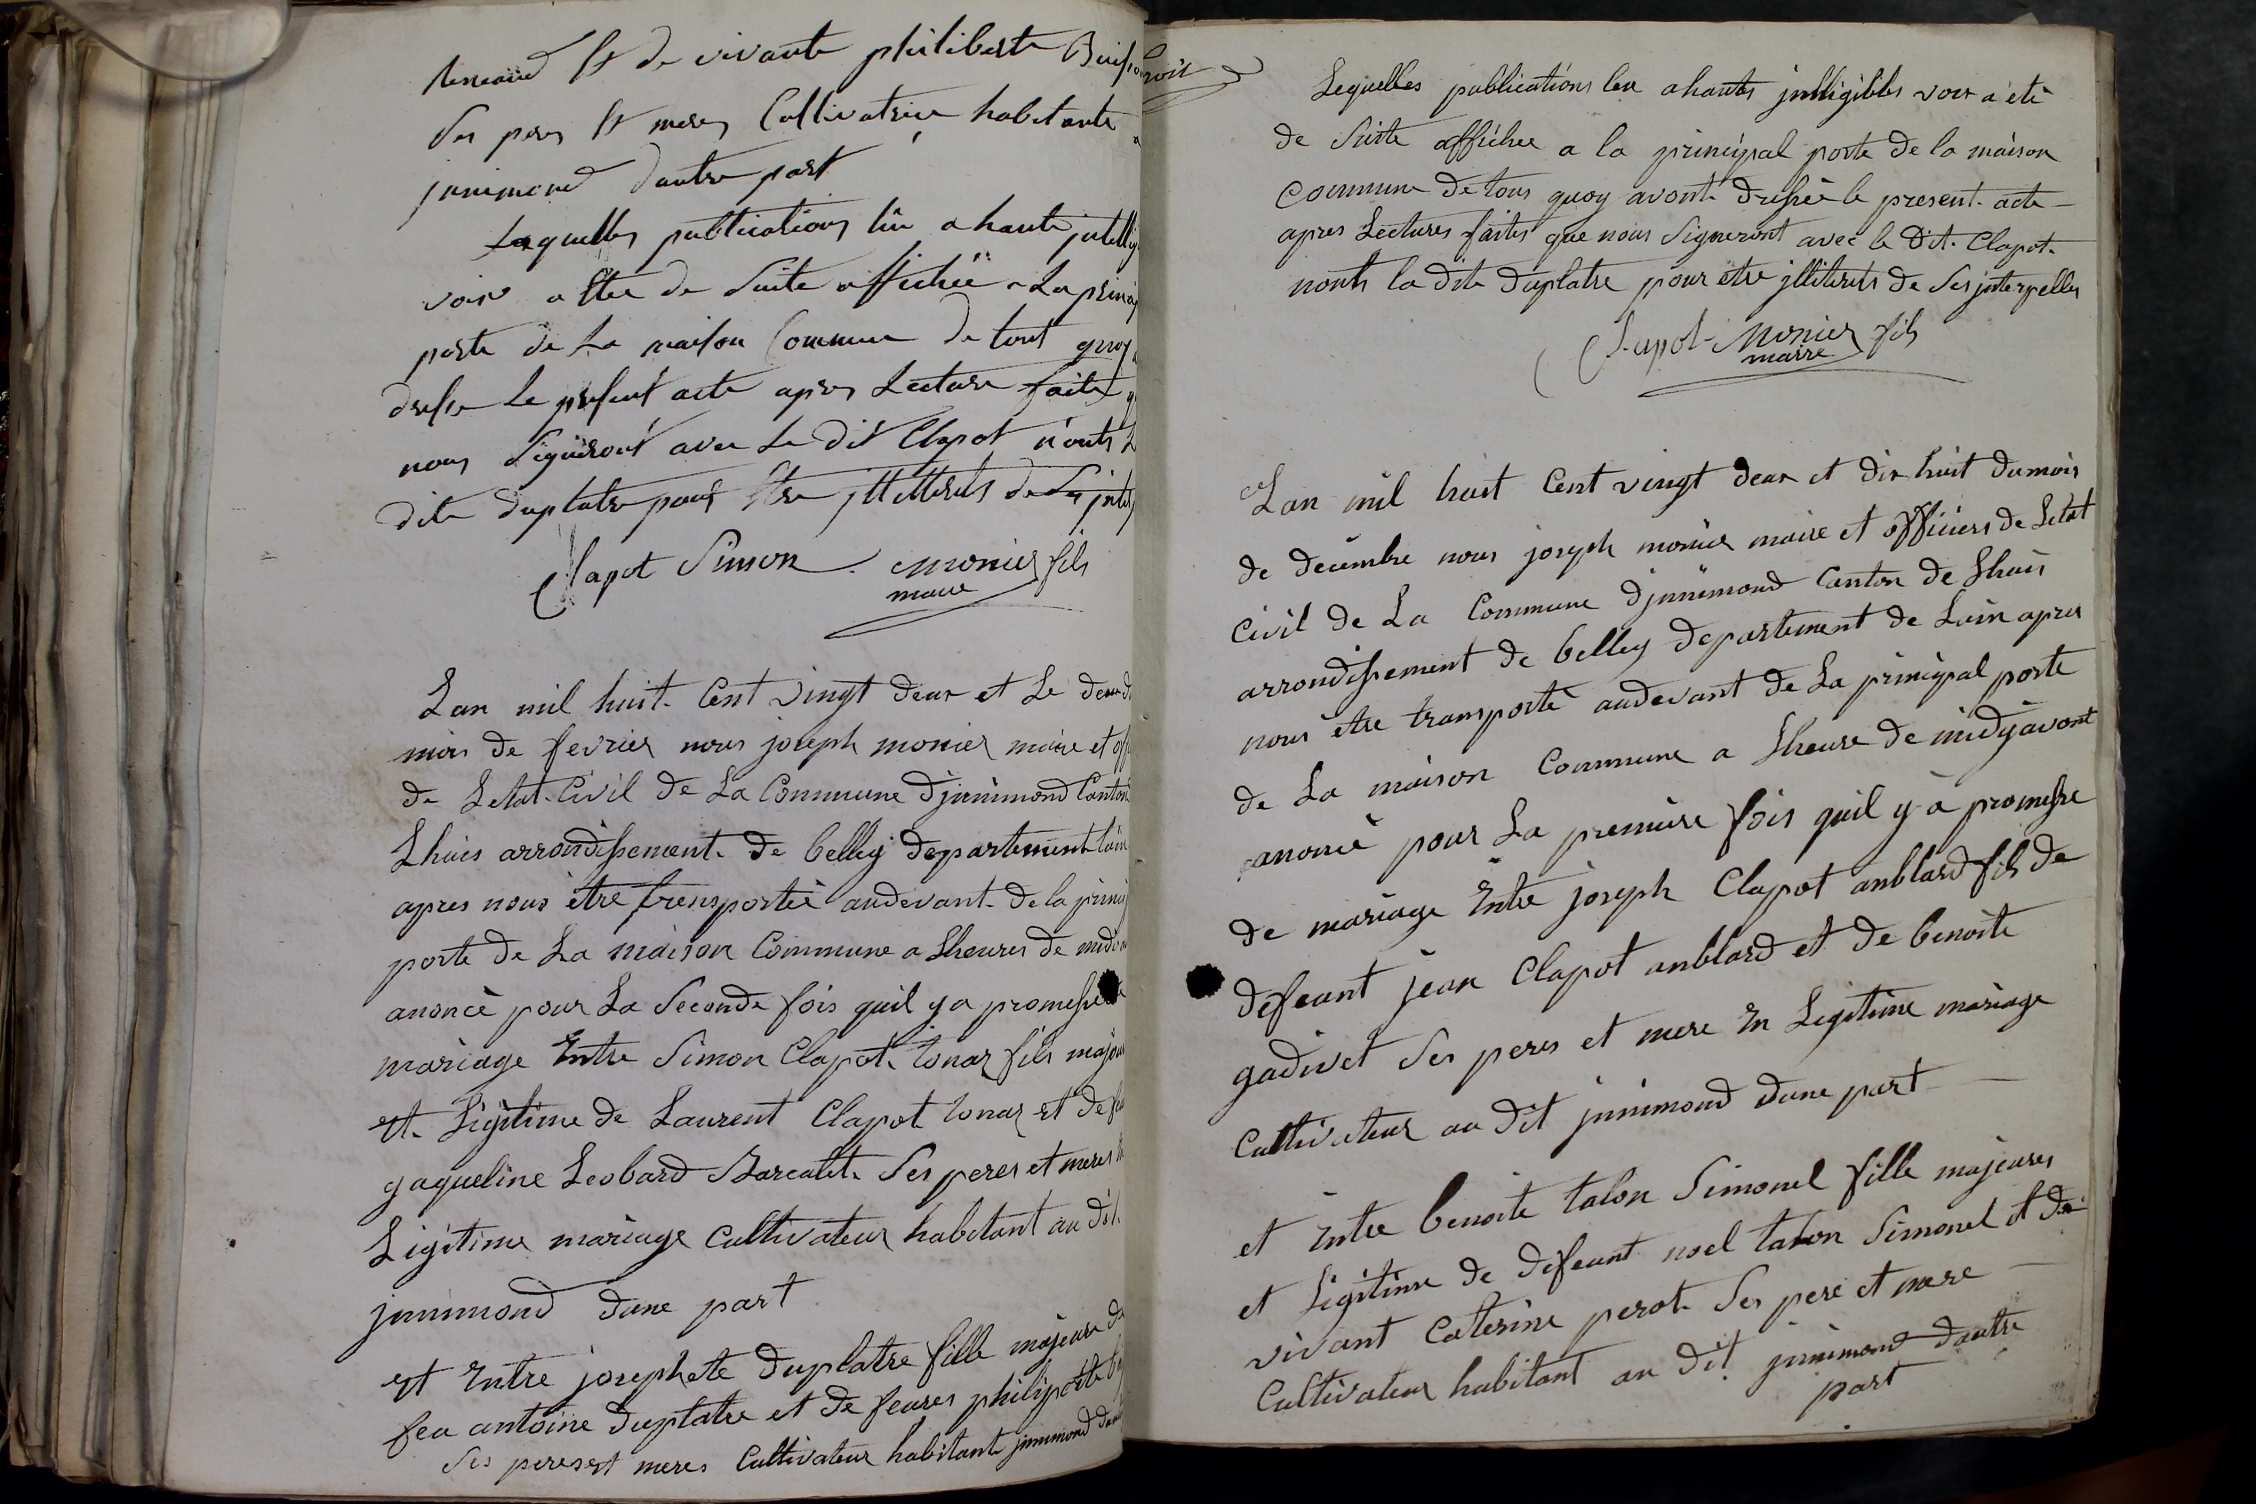 et de vivante philiberte
Ses peres et meres Cultivatrice habitante
jnnimond dautre part
Lesquelles publications lue a haute
voix a Etee de Suite affichéé a La
porte de La maison Commune de tout quoy
dresse Le present acte apres Lecture faite
nous Signeront avec Le dit Clapot nonts
dite duplatre pour Etre jllitteres de
Clapot Simon monier fils
maire
Lan mil huit Cent vingt deux et Le deux
mois de fevrier nous joseph monier maire et
de Letat Civil de La Commune djnnimond Canton
Lhuis arrondissement de belley departement
apres nous être transportée audevant de la
porte de La maison Commune a Lheures de
anoncé pour La Seconde fois quil y a promesse
mariage Entre Simon Clapot tonaz fils
et Ligitime de Laurent Clapot tonaz et de
jaqueline Leobard Ses peres et meres
Ligitime mariage Cultivateur habitant au dit
jnnimond dune part
et Entre josephete duplatre fille majeure
feu antoine duplatre et de
Ses peres et meres Cultivateur habitante jnnimond
Lequelles publications lue a hautes jntligibles voix a été
de Suite affichee a la principal porte de la maison
Commune de tous quoy avont dresseé le present acte
apres Lectures faites que nous Signeront avec le dit Clapot
nonts la dite duplatre pour etre jlliterets de Ses jnterpelles
Clapot Monier fils
maire
Lan mil huit Cent vingt deux et dix huit du mois
de decembre nous joseph monier maire et officiers de Letat
Civil de La Commune djnnimond Canton de Lhuis
arrondissement de belley departement de Lain apres
nous être transporté audevant de La principal porte
de La maison Commune a Lheure de midy avont
anoncé pour La premiere fois quil y a promesse
de mariage Entre joseph Clapot anblard fils de
defeunt jean Clapot anblard et de benoite
gadivet Ses peres et mere En Legitime mariage
Cultivateur au dit jnnimond dune part
et Entre benoite talon Simonel fille majeures
et Ligitime de defeunt noel talon Simonel et de
vivant Caterine perot Ses pere et mere
Cultivateur habitant au dit jnnimond dautre
part